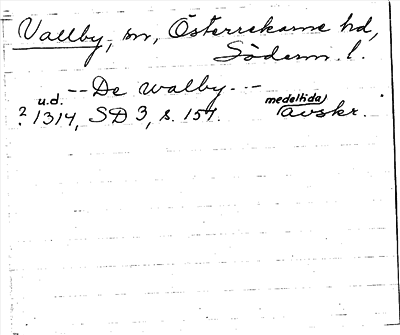 Vallby, sn, Österrekarne hd,
Söderm. l.
-- De walby --
u.d. medeltida
? 1314, SD 3, s. 157. avskr.